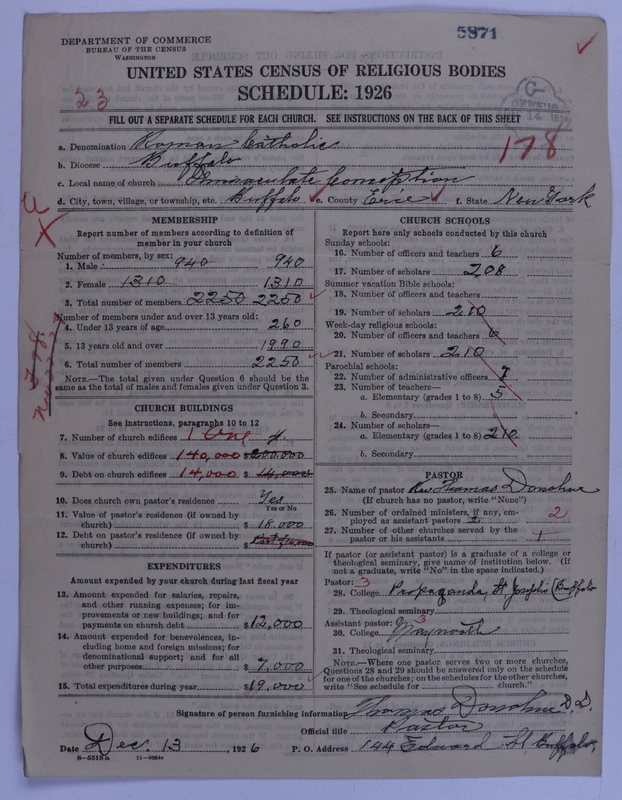 DEPARTMENT OF COMMERCE
BUREAU OF THE CENSUS
WASHINGTON
5871
UNITED STATES CENSUS OF RELIGIOUS BODIES
SCHEDULE: 1926
23
CENSUS
FILL OUT A SEPARATE SCHEDULE FOR EACH CHURCH. SEE INSTRUCTIONS ON THE BACK OF THIS SHEET
178
a. Denomination Roman Catholic
b. Diocese Buffalo
c. Local name of church Immaculate Conception
d. City, town, village, or township, etc. Buffalo e. County Erie f. State New York
MEMBERSHIP
Report number of members according to definition of member in your church
Number of members, by sex:
1. Male 940 940
2. Female 1310 1310
3. Total number of members 2250 2250
Number of members under and over 13 years old:
4. Under 13 years of age 260
5. 13 years old and over 1990
6. Total number of members 2250
NOTE.—The total given under Question 6 should be the same as the total of males and females given under Question 3.
CHURCH BUILDINGS
See instructions, paragraphs 10 to 12
7. Number of church edifices 1 One
8. Value of church edifices 140,000 $ 200.000
9. Debt on church edifices 14,000 $ 14,000
10. Does church own pastor's residence Yes
Yes or No
11. Value of pastor's residence (if owned by church) $ 18.000
12. Debt on pastor's residence (if owned by church) $
EXPENDITURES
Amount expended by your church during last fiscal year
13. Amount expended for salaries, repairs, and other running expenses; for improvements or new buildings; and for payments on church debt $12,000
14. Amount expended for benevolences, including home and foreign missions; for denominational support; and for all other purposes $ 7,000
15. Total expenditures during year $19,000
CHURCH SCHOOLS
Report here only schools conducted by this church
Sunday schools:
16. Number of officers and teachers 6
17. Number of scholars 208
Summer vacation Bible schools:
18. Number of officers and teachers
19. Number of scholars 210
Week-day religious schools:
20. Number of officers and teachers 6
21. Number of scholars 210
Parochial schools:
22. Number of administrative officers
23. Number of teachers—
a. Elementary (grades 1 to 8) 5
b. Secondary
24. Number of scholars—
a. Elementary (grades 1 to 8) 210
b. Secondary
PASTOR
25. Name of pastor Rev Thomas Donohue
(If church has no pastor, write "None")
26. Number of ordained ministers, if any, employed as assistant pastors 2 2
27. Number of other churches served by the pastor or his assistants 1
If pastor (or assistant pastor) is a graduate of a college or theological seminary, give name of institution below. (If not a graduate, write "No" in the space indicated.)
Pastor: 3
28. College Propaganda, St. Josephs (Buffalo
29. Theological seminary
Assistant pastor: 3
30. College
31. Theological seminary
NOTE.—Where one pastor serves two or more churches, Questions 28 and 29 should be answered only on the schedule for one of the churches; on the schedules for the other churches, write "See schedule for church."
Signature of person furnishing information Thomas Donohue D.D.
Official title Pastor
Date Dec. 13, 1926 P. O. Address 144 Edward St Buffalo
8—5519a 11—9084a